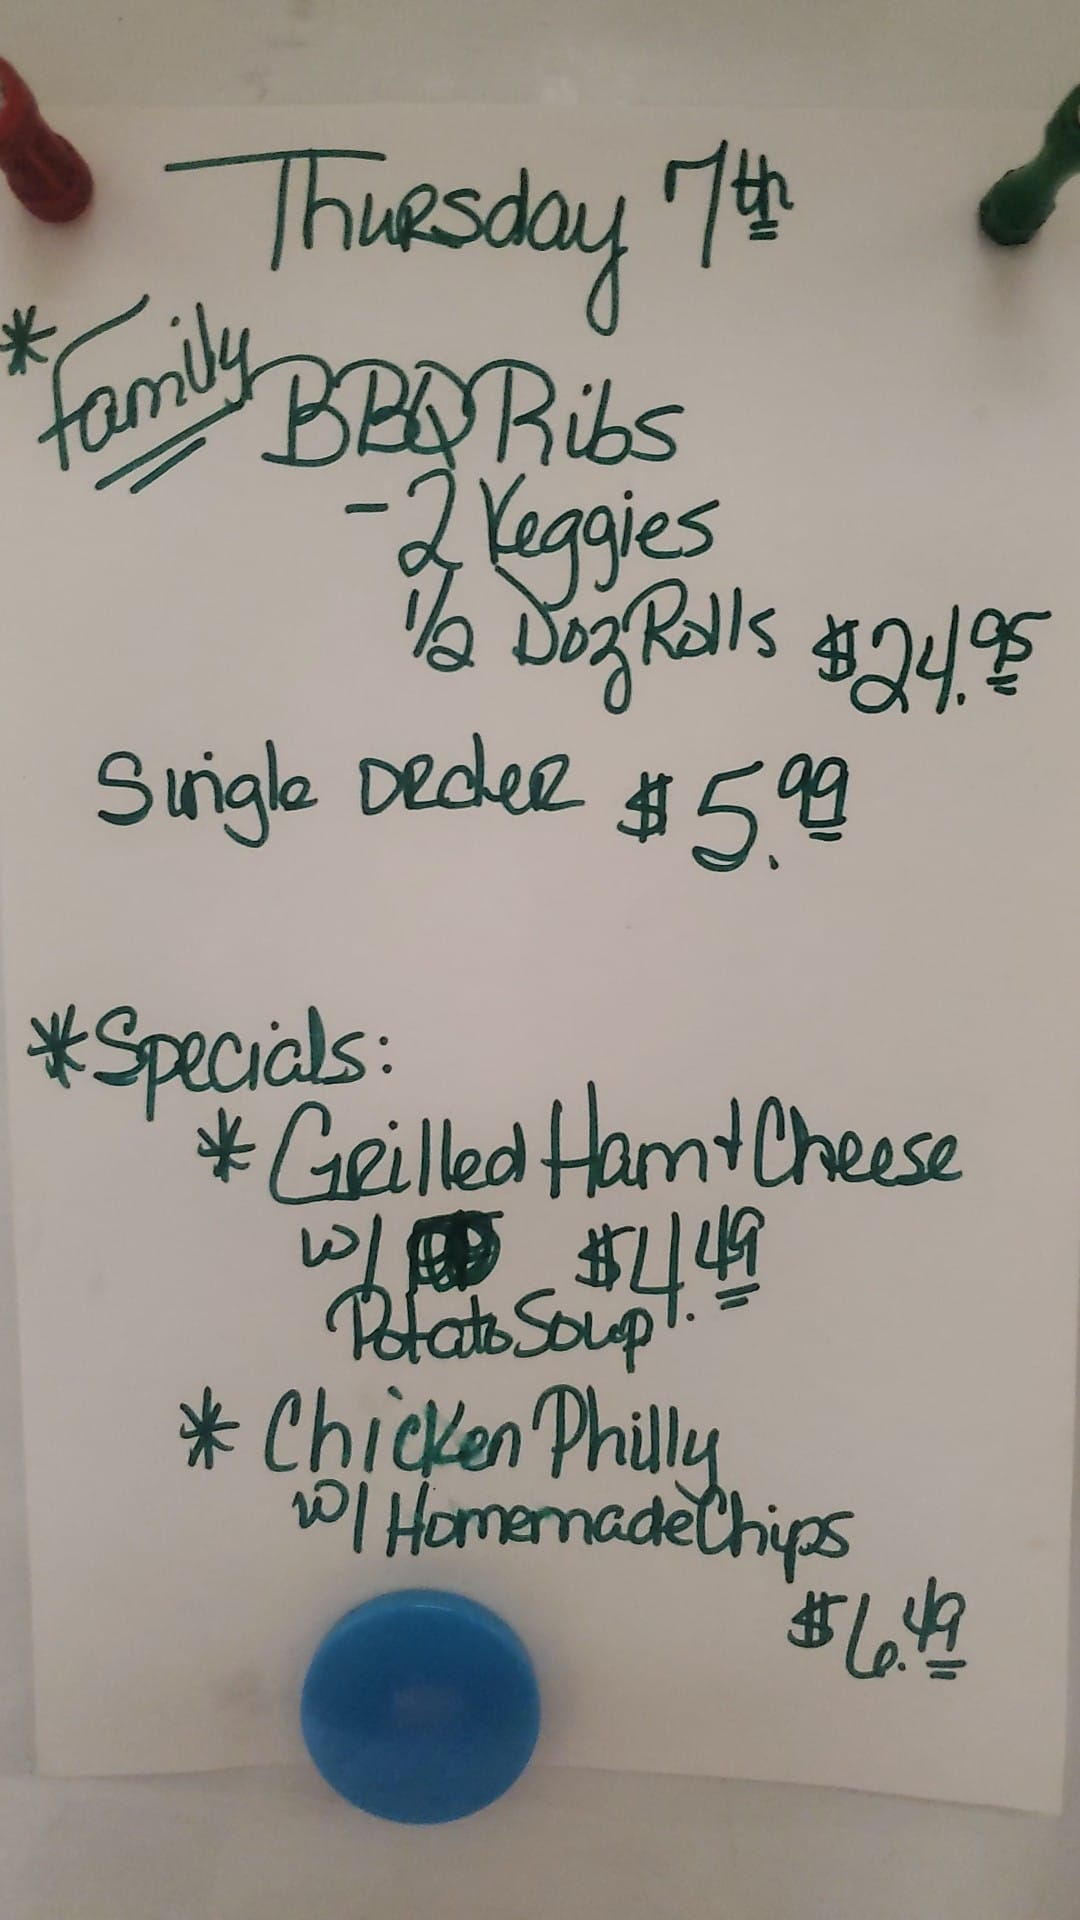 Thursday 7th
* Family BBQ Ribs
- 2 Veggies
1/2 Doz Rolls $24.95
Single Order $5.99
*Specials:
* Grilled Ham + Cheese
w/ $4.49
Potato Soup
* Chicken Philly
w/ Homemade Chips
$6.49